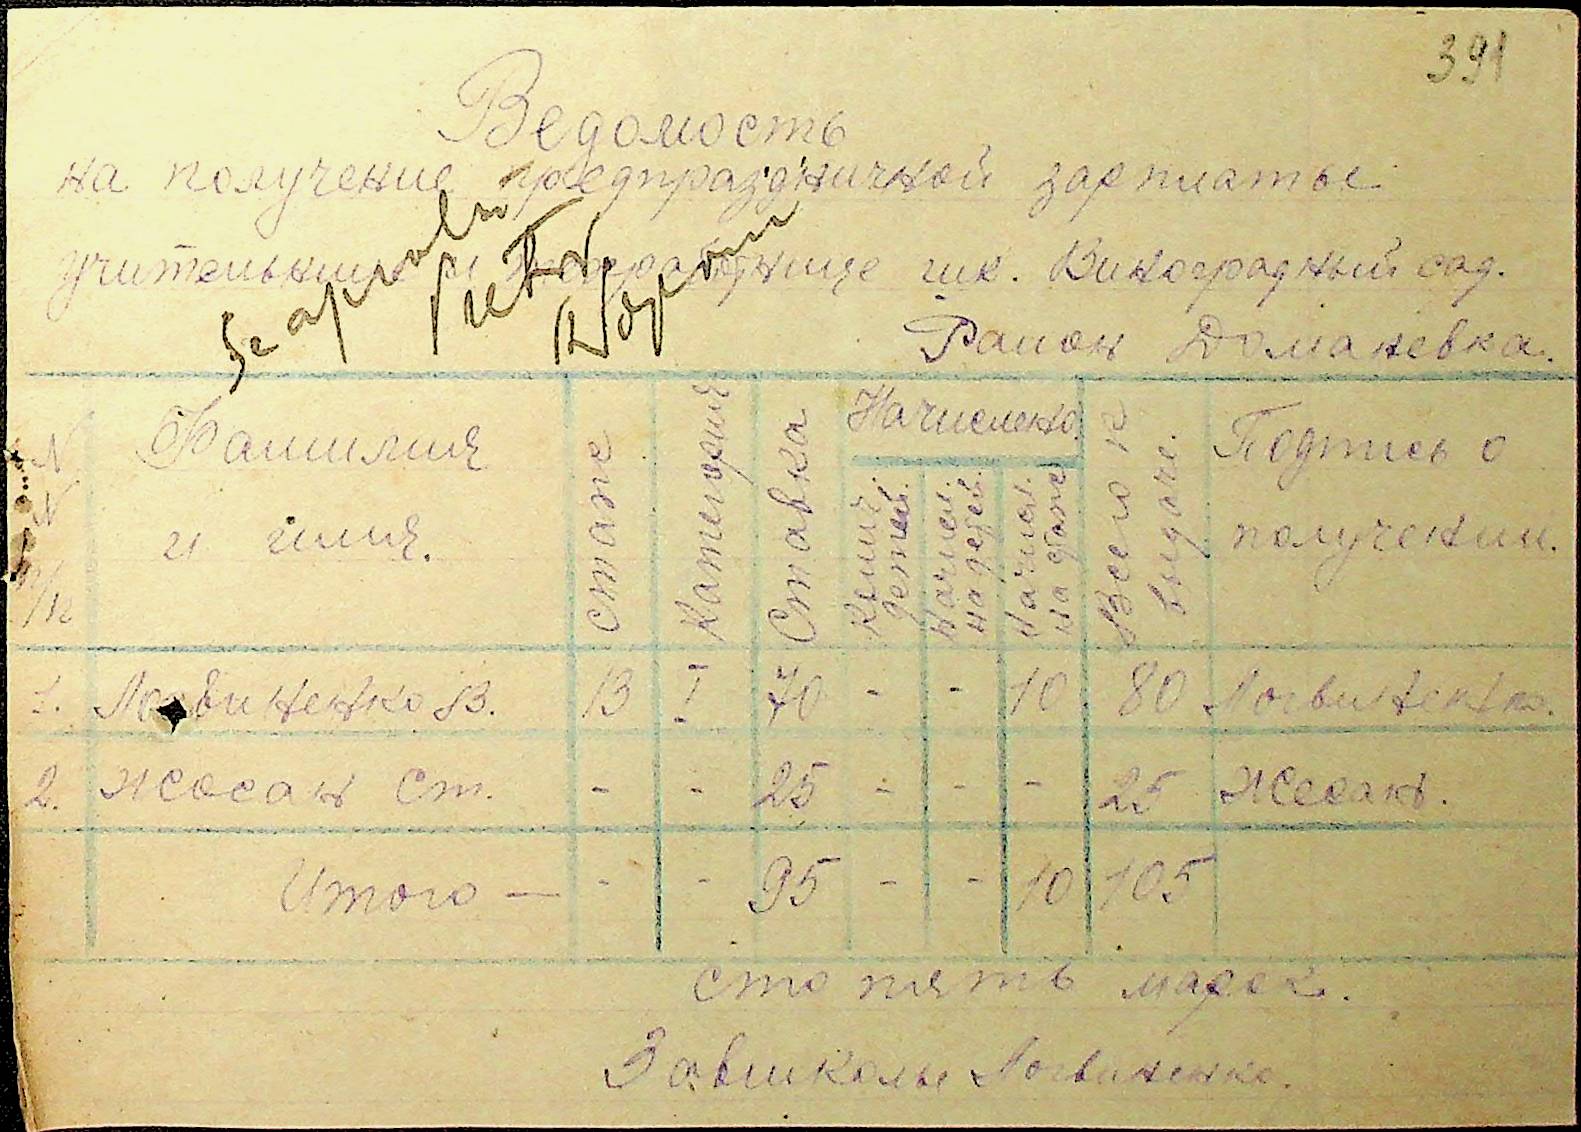 391
Ведомость
на получение предпраздничной зарплаты
учительнице и техработнице шк. Виноградный сад.
Район Доманевка.
Se aprobă
N N п/п
Фамилия и имя.
стаж
Категория
Ставка
Начислено
Колич. детей.
Начисл. на детей.
Начисл. на стаж
Всего к выдаче.
Подпись о получении.
1. Логвиненко В. 13 I 70 - - 10 80 Логвиненко.
2. Жосан Ст. - - 25 - - - 25 Жосан.
Итого — - - 95 - - 10 105
сто пять марок.
Завшколы Логвиненко.